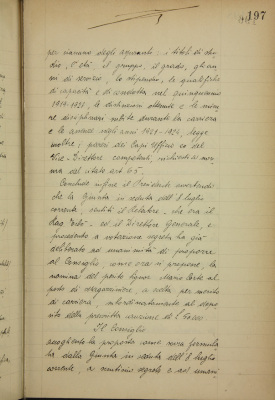 197
per ciascuno degli aspiranti: i titoli di stu-
dio, l'età, il gruppo, il grado, gli an-
ni di servizio, lo stipendio, le qualifiche
di capacità e di condotta nel quinquennio
1919-1923, le distinzioni ottenute e le misu-
re disciplinari subite durante la carriera
e le assenze negli anni 1921-1924, legge
inoltre i pareri dei Capi Ufficio e del
Vice-Direttore competenti, richiesti a nor-
ma del citato art. 65.
Conclude infine il Presidente avvertendo
che la Giunta in seduta dell'8 luglio
corrente, sentiti il Relatore, che era il
Rag. ed il Direttore Generale,
procedendo a votazione segreta, ha già
deliberato ad unanimità di proporre
al Consiglio come ora si propone, la
nomina del posto signor Mario al
posto di a scelta per merito
di carriera, subordinatamente al depo-
sito della prescritta cauzione di L.
Il Consiglio
accogliendo la proposta come sopra formula-
ta dalla Giunta in seduta dell'8 luglio
corrente, a scrutinio segreto e ad unani-